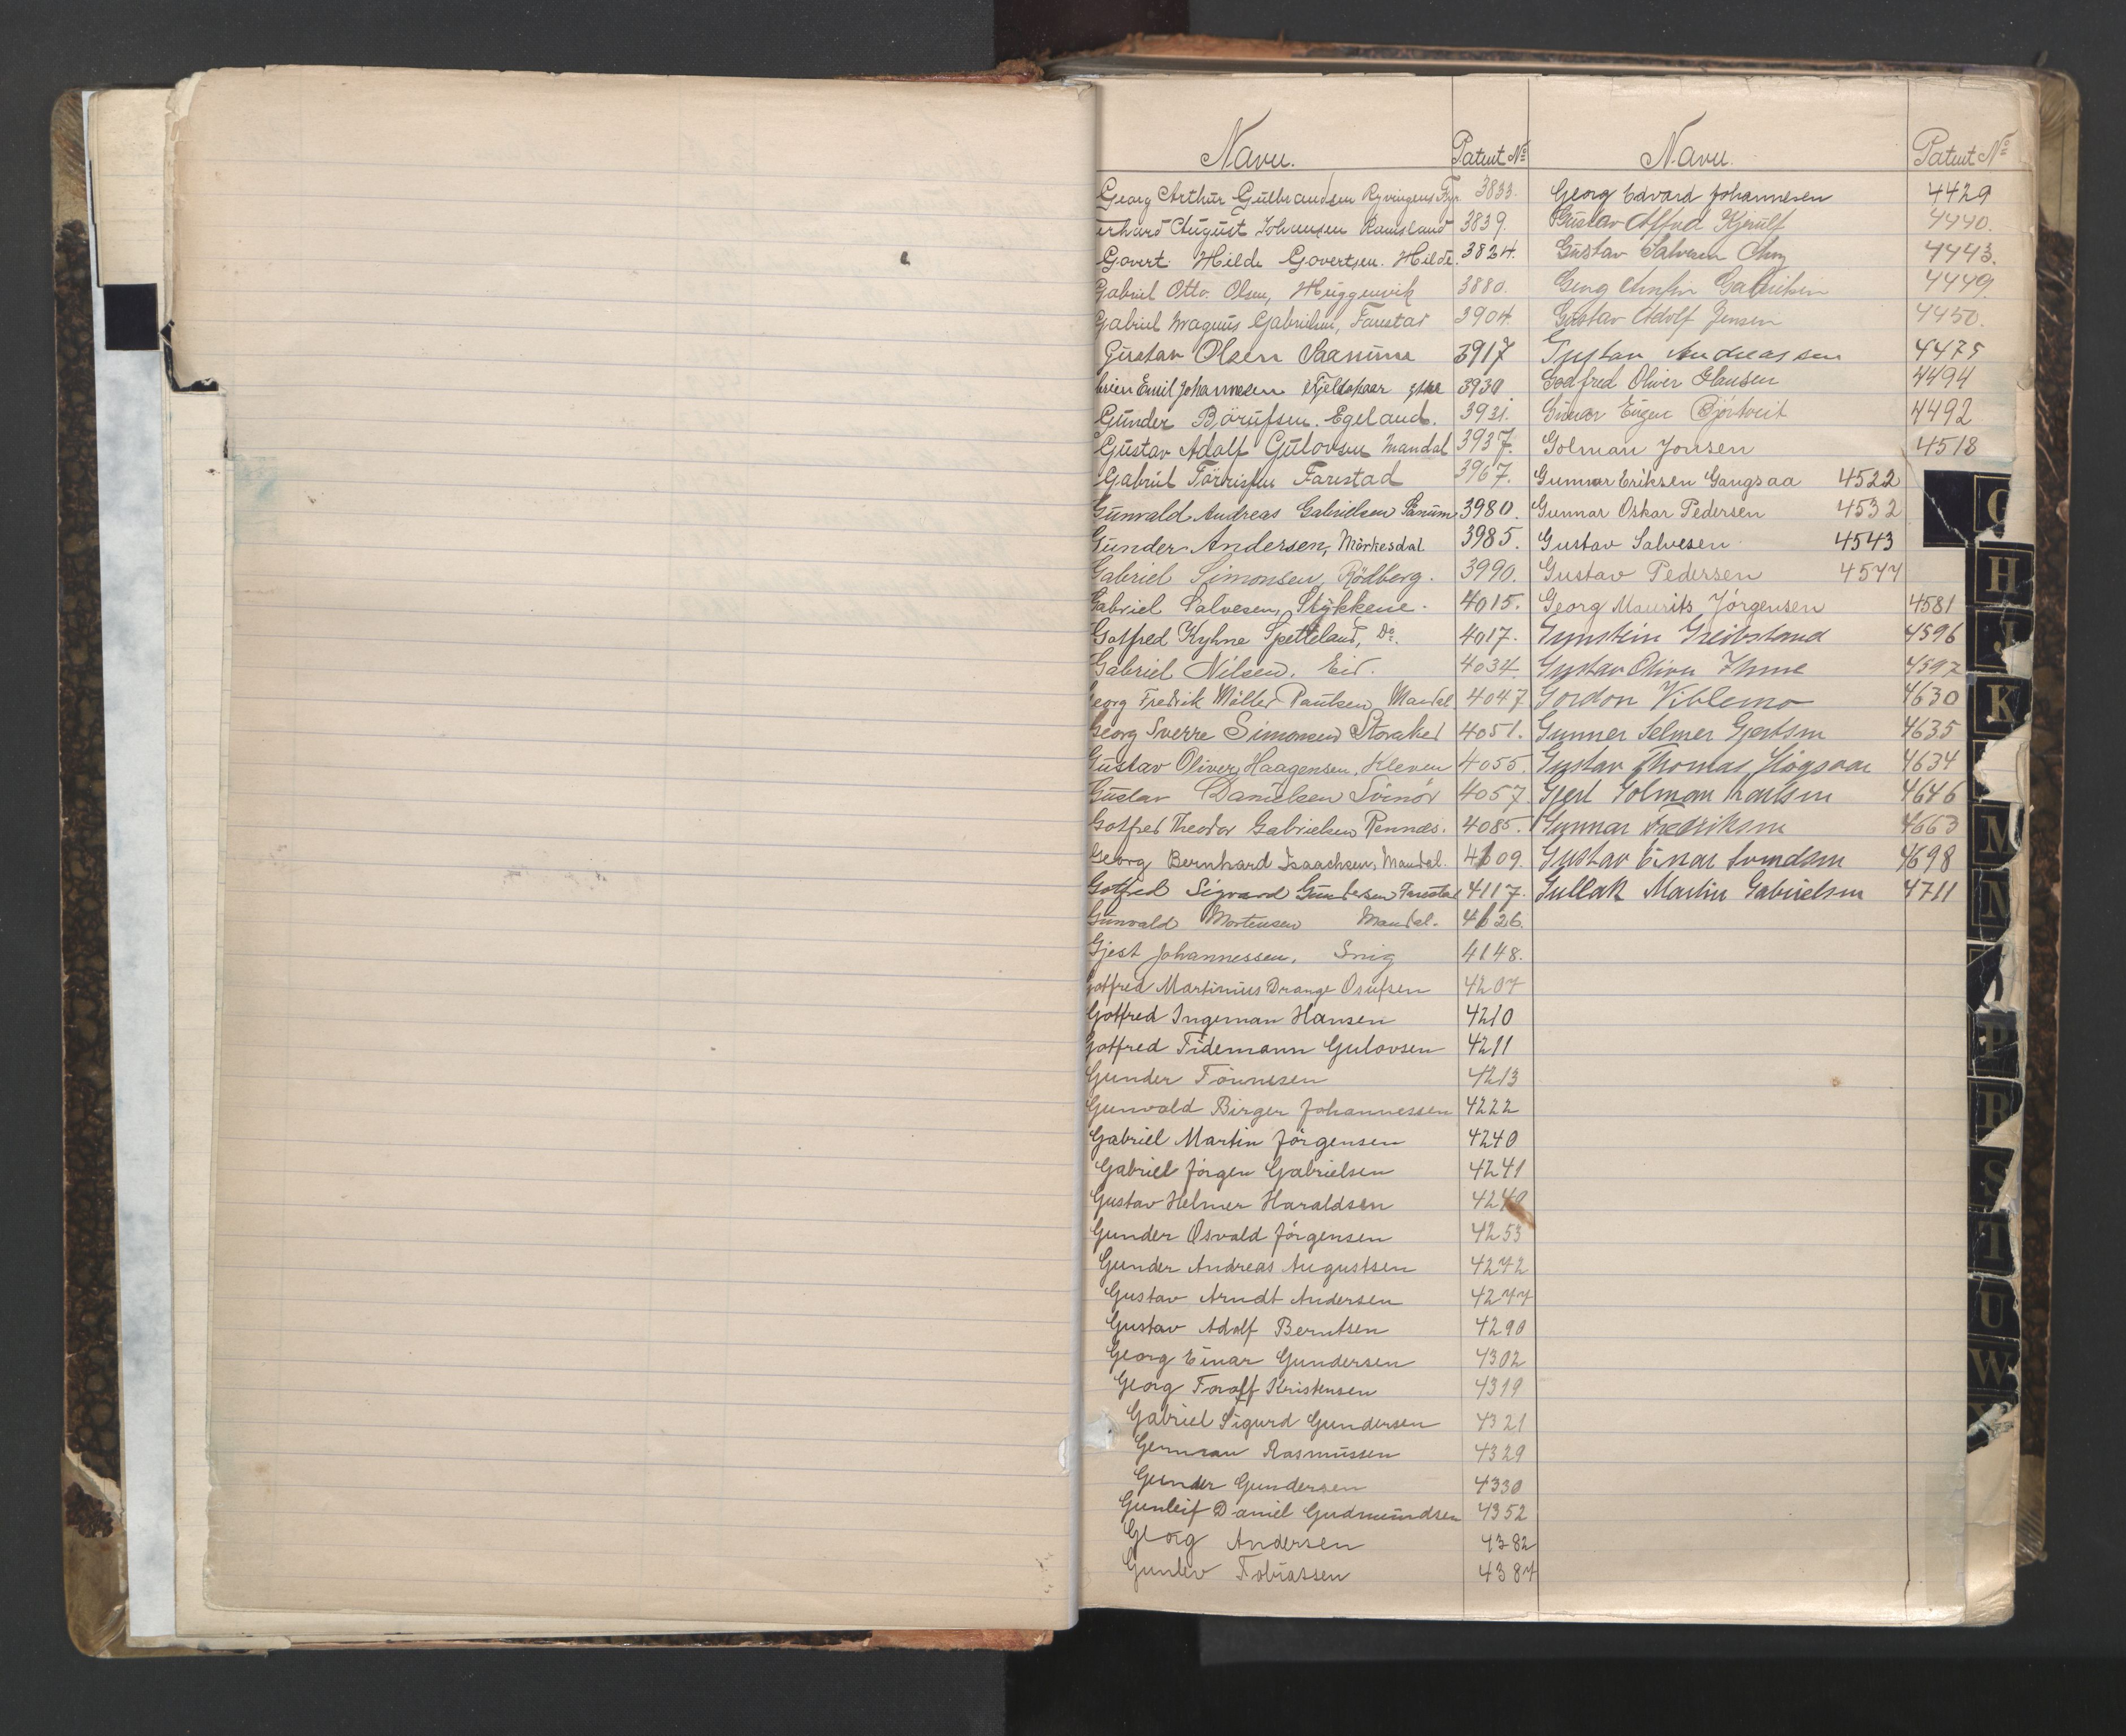 Navn. Patent No
Georg Arthur Gulbrandsen Ryvingens Fyr. 3833.
Gerhard August Johansen Ramsland 3839.
Govert Hilde Govertsen. Hilde. 3824.
Gabriel Otto Olsen, 3880.
Gabriel Magnus Gabrielsen, Farestad 3904.
Gustav Olsen Saanum 3917
Emil Johannesen 3930.
Gunder Börufsen. Egeland. 3931.
Gustav Adolf Gulovsen Mandal 3937.
Gabriel Törrisen Farestad 3967.
Gunvald Andreas Gabrielsen Sånum 3980.
Gunder Andersen, Mörkesdal 3985.
Gabriel Simonsen, Rödberg. 3990.
Gabriel Salvesen, Stykkene. 4015.
Gotfred Kyhne Spetteland, Do. 4017.
Gabriel Nilsen, Eid. 4034.
Georg Fredrik Möller Paulsen, Mandal 4047
Georg Sverre Simonsen Storaker 4051.
Gustav Oliver Haagensen, Kleven 4055.
Gustav Danielsen Svinör 4057
Gotfred Theodor Gabrielsen Rennes. 4085.
Georg Bernhard Isaachsen, Mandal. 4109.
Gotfred Sigvard Gundersen Farestad 4117.
Gunvald Mortensen Mandal. 4126.
Gjest Johannessen, Snig 4148.
Gotfred Martinius Drange Osufsen 4207
Gotfred Ingeman Hansen 4210
Gotfred Tidemann Gulovsen 4211
Gunder Tönnesen 4213
Gunvald Birger Johannessen 4222
Gabriel Martin Jörgensen 4240
Gabriel Jörgen Gabrielsen 4241
Gustav Helmer Haraldsen 4240
Gunder Osvald Jörgensen 4253
Gunder Andreas Augustsen 4272
Gustav Arndt Andersen 4277
Gustav Adolf Berntsen 4290
Georg Einar Gundersen 4302
Georg Toralf Kristensen 4319
Gabriel Sigurd Gundersen 4321
German Rasmussen 4329
Gunder Gundersen 4330
Gunleif Daniel Gudmundsen 4352
Georg Andersen 4382
Gunlev Tobiassen 4387
Navn. Patent No
Georg Edvard Johannesen 4429
Gustav Alfred Kjerulf 4440.
Gustav Salvesen 4443.
Georg Gabrielsen 4449.
Gustav Adolf Jensen 4450.
Gustav Andreassen 4475
Godfred Oliver Hansen 4494
Gunnar Eugen Bjørtveit 4492
Golman Jonsen 4518
Gunnar Eriksen Gangsaa 4522
Gunnar Oskar Pedersen 4532
Gustav Salvesen 4543
Gustav Pedersen 4577
Georg Maurits Jörgensen 4581
Gunstein Greibsland 4596
Gustav Oliver Ihme 4597
Gordon Viblemo 4630
Gunner Selmer Gjertsen 4635
Gustav Thomas Høgsaas 4634
Gjert Golman Karlsen 4646
Gunnar Fredriksen 4663
Gustav Einar Svendsen 4698
Gullak Martin Gabrielsen 4711
G
H
J
K
M
N
P
R
S
T
U
W